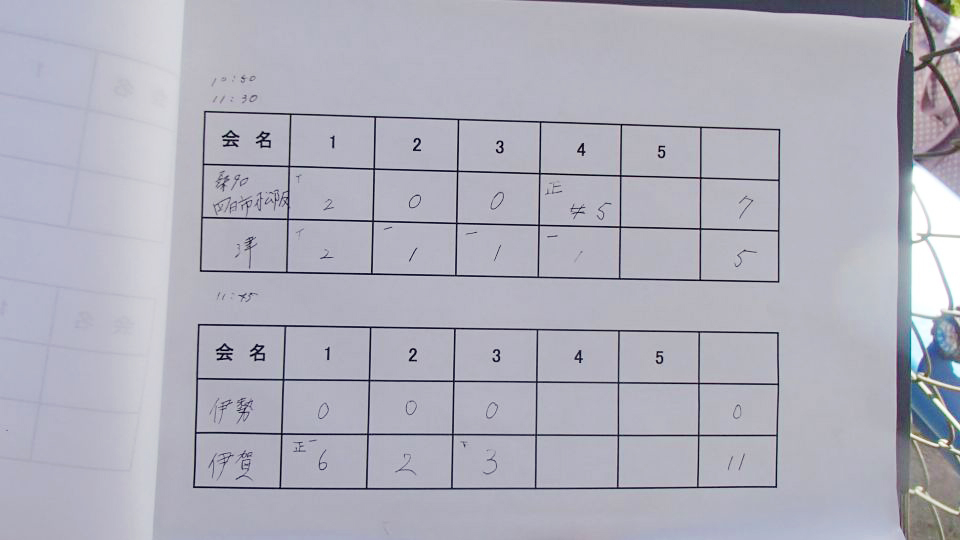 10:50
11:30
会 名 1 2 3 4 5
桑名
四日市松阪 丅 2 0 0 正 5 7
津 丅 2 一 1 一 1 一 1 5
11:45
会 名 1 2 3 4 5
伊勢 0 0 0 0
伊賀 正一 6 2 下 3 11